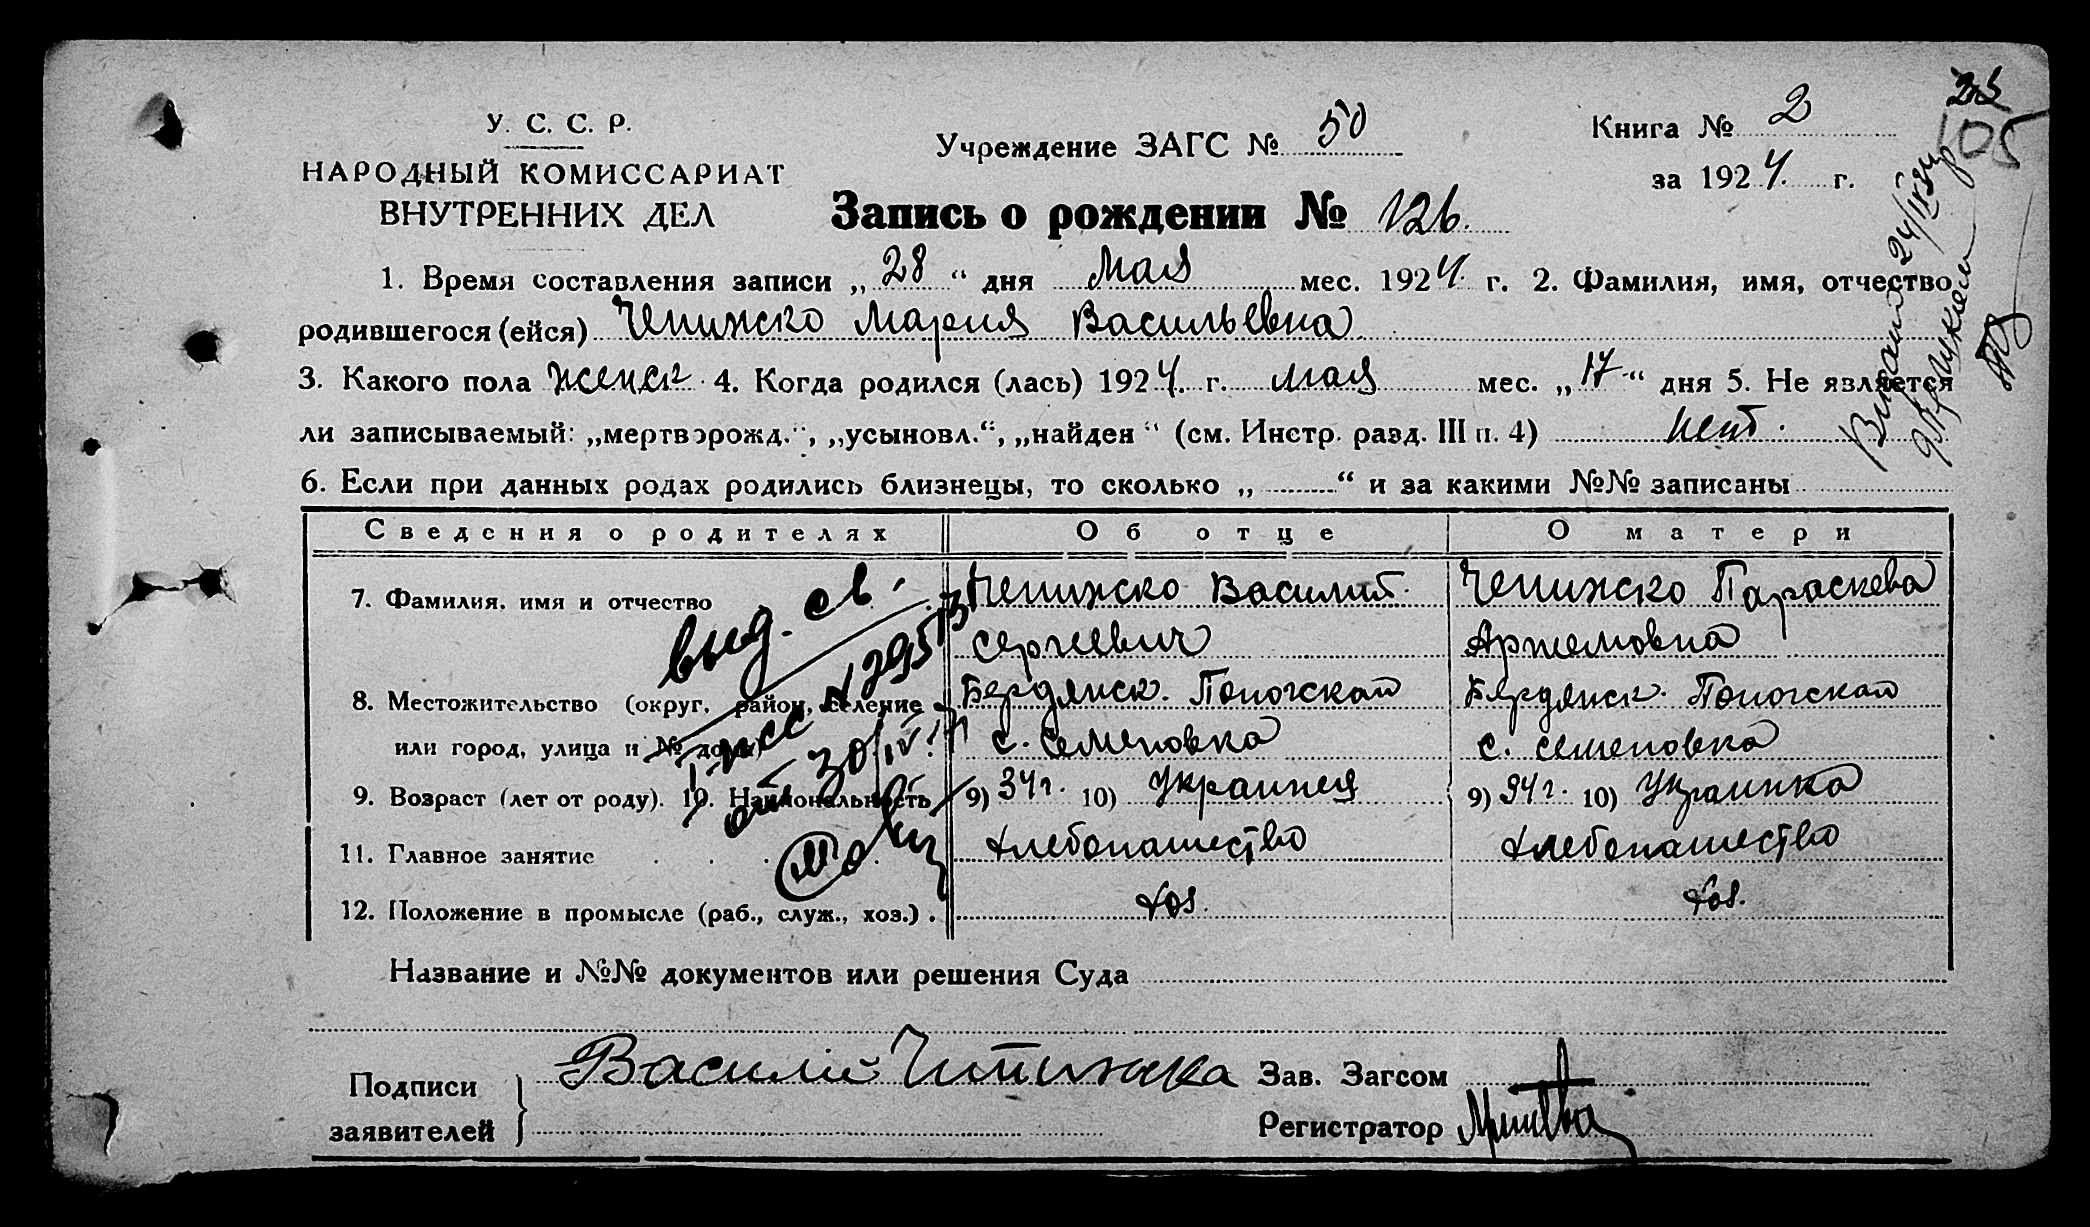 У. С. С. Р.
НАРОДНЫЙ КОМИССАРИАТ
ВНУТРЕННИХ ДЕЛ
Учреждение ЗАГС № 50
Книга № 2
за 1924 г.
25
105
Запись о рождении № 126.
1. Время составления записи „28“ дня Мая мес. 1924 г. 2. Фамилия, имя, отчество
родившегося (ейся) Чепижско Мария Васильевна
3. Какого пола женск 4. Когда родился (лась) 1924 г. мая мес. „17“ дня 5. Не является
ли записываемый: „мертворожд.“, „усыновл.“, „найден“ (см. Инстр. разд. III п. 4) нет.
6. Если при данных родах родились близнецы, то сколько „ “ и за какими №№ записаны
Сведения о родителях Об отце О матери
7. Фамилия, имя и отчество Чепижско Василий Чепижско Параскева
Сергеевич Артемовна
8. Местожительство (округ, район, селение Бердянск. Пологскай Бердянск. Пологскай
или город, улица и № дома) с. Семеновка с. Семеновка
9. Возраст (лет от роду). 10. Национальность 9) 34 г. 10) Украинец 9) 34 г. 10) Украинка
11. Главное занятие Хлебопашество Хлебопашество
12. Положение в промысле (раб., служ., хоз.) . хоз. хоз.
выд. св.
от 30/IV
Название и №№ документов или решения Суда
Подписи
заявителей
Василий
Зав. Загсом
Регистратор